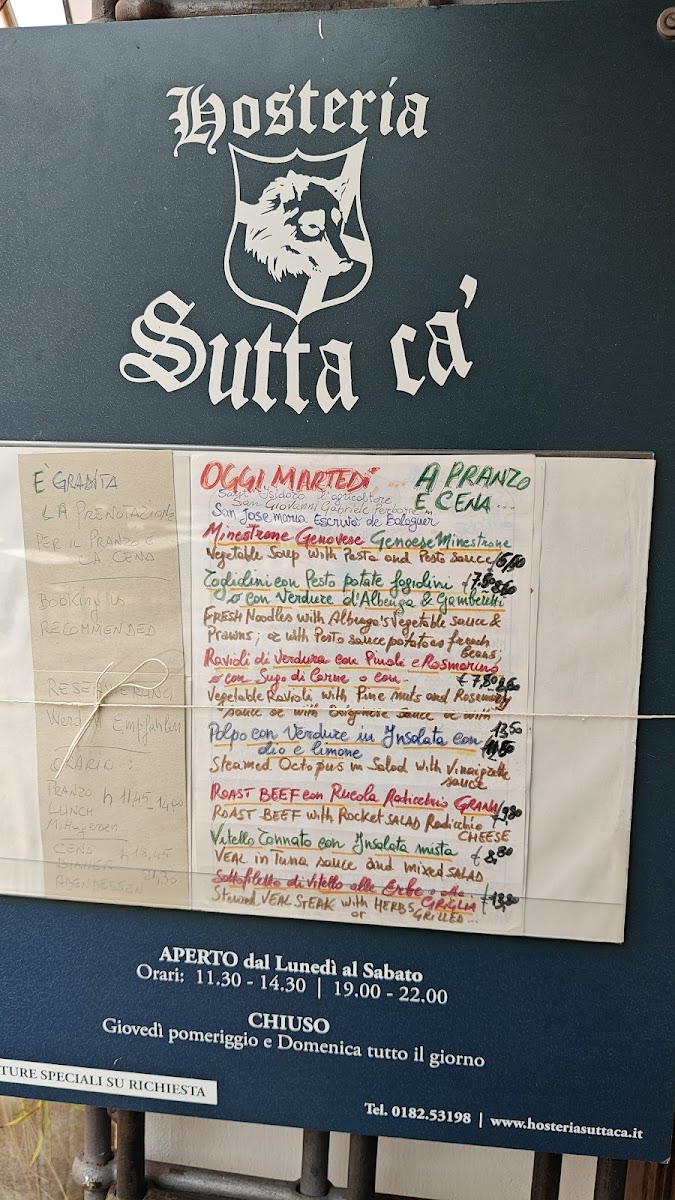 Hosteria
Sutta cà
È GRADITA
LA PRENOTAZIONE
PER IL PRANZO E
LA CENA
BOOKING IS
RECOMMENDED
RESERVIERUNG
Werden Empfahlen
ORARIO:
PRANZO h 11,45-14,00
LUNCH
Mittagessen
CENA h 18,45
DINNER 21,30
ABENDESSEN
OGGI MARTEDÌ ... A PRANZO
E CENA...
Sant Isidoro l'agricoltore
San Giovanni Gabriele Perboyre
San Josemaria Escrivà de Balaguer
Minestrone Genovese Genoese Minestrone
Vegetable Soup with Pasta and Pesto Sauce
Taglidini con Pesto patate fagiolini
o con Verdure d'Albenga & Gamberetti
FRESH Noodles with Albenga's Vegetable sauce &
Prawns; or with Pesto sauce potatoes french
beans;
Ravioli di Verdura con Pinoli e Rosmarino
o con Sugo di Carne o con..
Vegetable Ravioli with Pine nuts and Rosemary
sauce or with sauce or with
Polpo con Verdure in Insalata con 13,50
olio e limone
Steamed Octopus in Salad with Vinaigrette
sauce
ROAST BEEF con Rucola Radicchio GRANA
ROAST BEEF with Rocket SALAD Radicchio
CHEESE
Vitello Tonnato con Insalata mista € 8,80
VEAL in Tuna sauce and mixed SALAD
Sottofiletto di Vitello alle Erbe o alla GRIGLIA € 13,80
Stewed VEAL STEAK with HERBS or GRILLED...
APERTO dal Lunedì al Sabato
Orari: 11.30 - 14.30 | 19.00 - 22.00
CHIUSO
Giovedì pomeriggio e Domenica tutto il giorno
TURE SPECIALI SU RICHIESTA
Tel. 0182.53198 | www.hosteriasuttaca.it